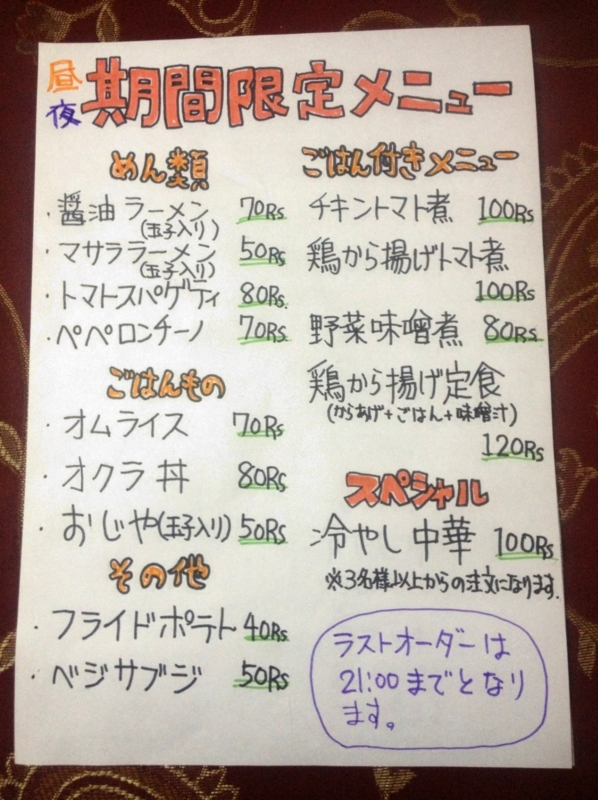 昼
夜
期間限定メニュー
めん類
・醤油ラーメン 70Rs
(玉子入り)
・マサララーメン 50Rs
(玉子入り)
・トマトスパゲティ 80Rs.
・ペペロンチーノ 70Rs
ごはんもの
・オムライス 70Rs
・オクラ丼 80Rs
・おじや(玉子入り) 50Rs
その他
・フライドポテト 40Rs
・ベジサブジ 50Rs
ごはん付きメニュー
チキントマト煮 100Rs
鶏から揚げトマト煮
100Rs
野菜味噌煮 80Rs
鶏から揚げ定食
(からあげ+ごはん+味噌汁)
120Rs
スペシャル
冷やし中華 100Rs
※3名様以上からの注文になります.
ラストオーダーは
21:00までとなり
ます。